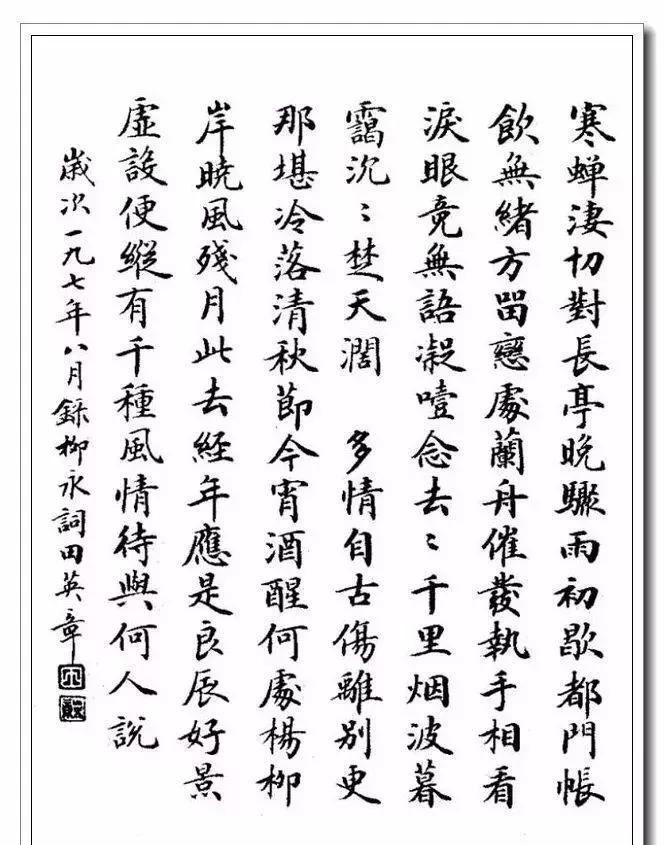 寒蝉淒切對長亭晚驟雨初歇都門帳
飲無緒方留戀處蘭舟催發執手相看
淚眼竟無語凝噎念去〻千里烟波暮
靄沉〻楚天濶 多情自古傷離別更
那堪冷落清秋節今宵酒醒何處楊柳
岸曉風殘月此去経年應是良辰好景
虛設便縱有千種風情待與何人說
歲次一九七年八月錄柳永詞田英章